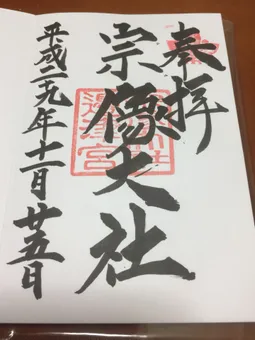 奉拝
宗像大社
平成二十九年十一月廿五日